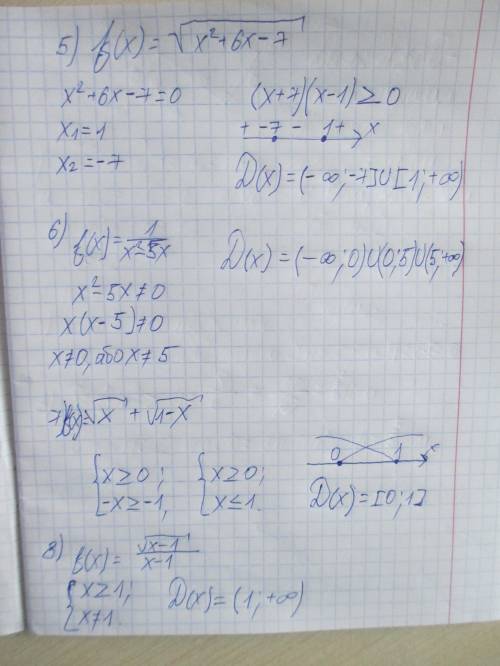 5) f(x) = √(x²+6x-7)
x²+6x-7=0 (x+7)(x-1)≥0
x₁=1 + -7 - 1 + x
x₂=-7 D(x)=(-∞;-7]∪[1;+∞)
6) f(x)=1/(x²-5x) D(x)=(-∞;0)∪(0;5)∪(5;+∞)
x²-5x≠0
x(x-5)≠0
x≠0, або x≠5
7) f(x)=√x + √(1-x)
{x≥0; {x≥0; 0 1 x
{-x≥-1, {x≤1. D(x)=[0;1]
8) f(x)= √(x-1)/(x-1)
{x≥1; D(x)=(1;+∞)
{x≠1.